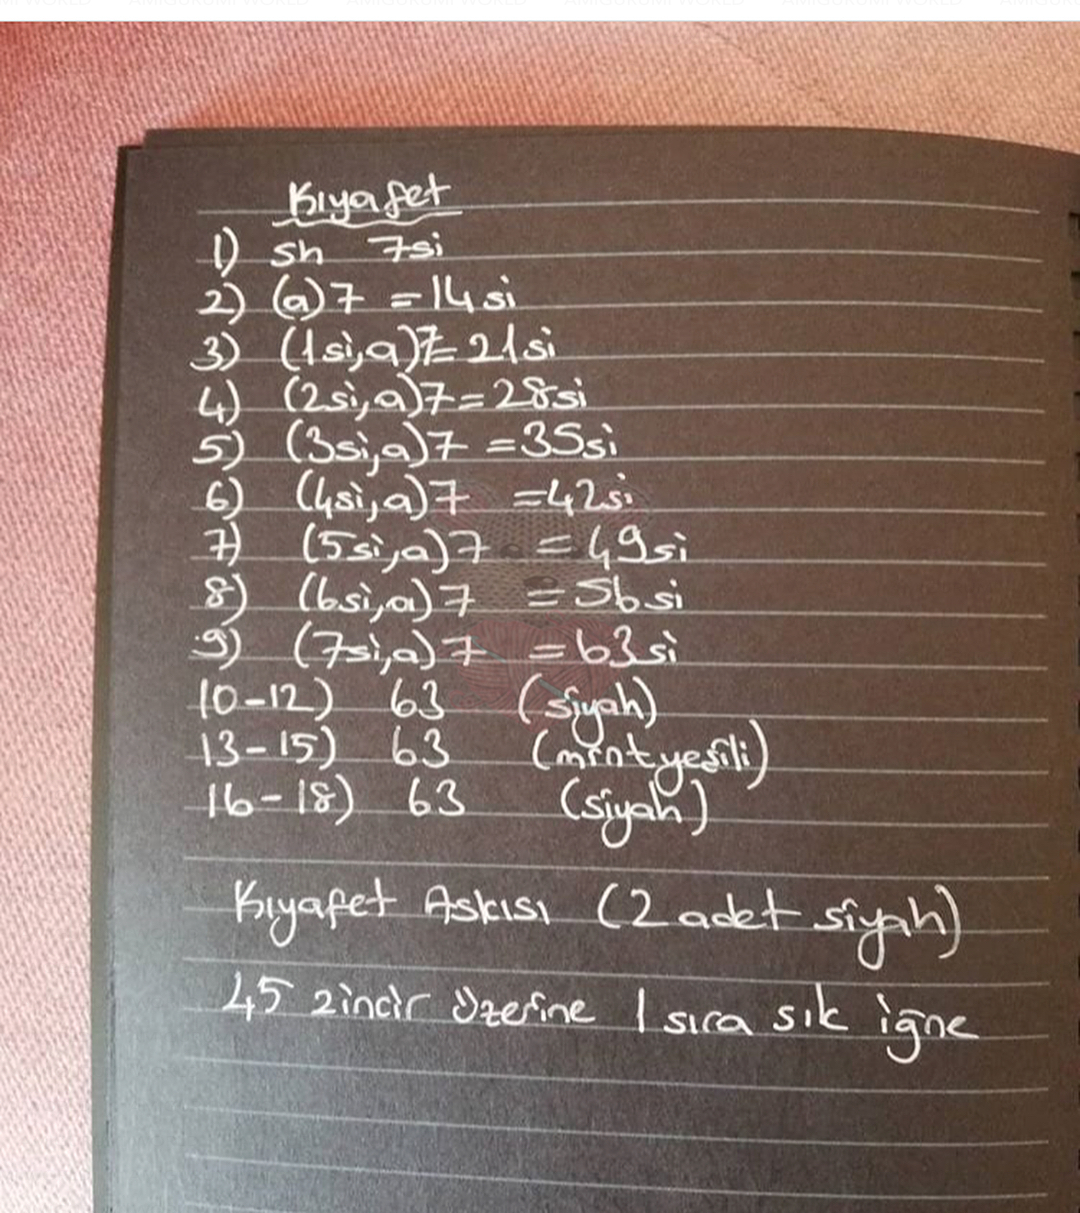 Kıyafet
1) sh 7si
2) (a)7 =14si
3) (1si,a)7=21si
4) (2si,a)7=28si
5) (3si,a)7 =35si
6) (4si,a)7 =42si
7) (5si,a)7 =49si
8) (6si,a)7 =56si
9) (7si,a)7 =63si
10-12) 63 (siyah)
13-15) 63 (mint yeşili)
16-18) 63 (siyah)
Kıyafet Askısı (2 adet siyah)
45 zincir üzerine 1 sıra sık iğne